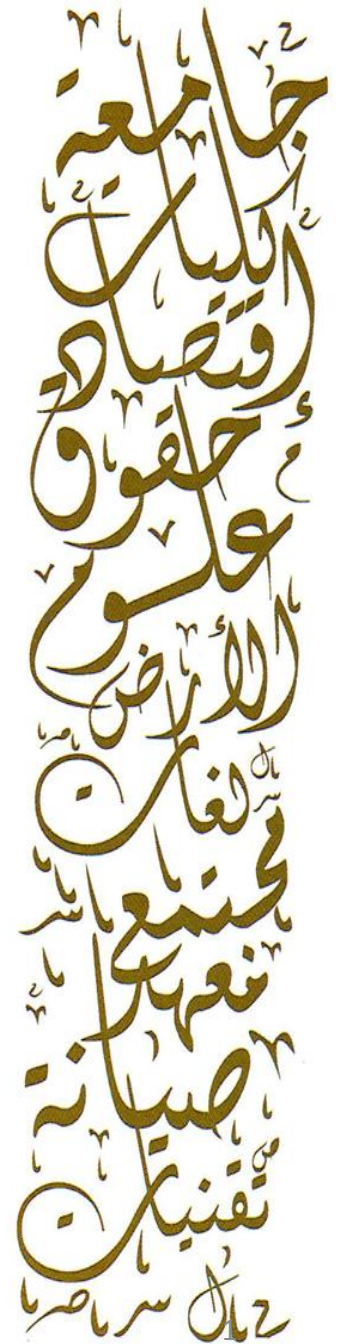 جامعة
كليات
اقتصاد
حقوق
علوم
الأرض
لغات
مجتمع
معهد
صيانة
تقنيات